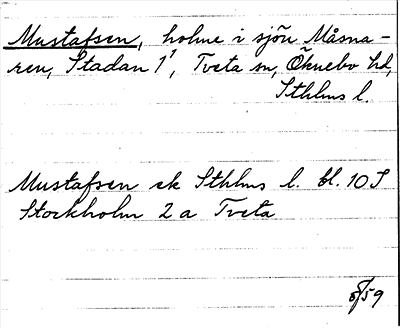 Mustafsen, holme i sjön Måsna-
ren, Stadan 1¹, Tveta sn, Öknebo hd,
Sthlms l.
Mustafsen ek Sthlms l. bl. 10 S
Stockholm 2 a Tveta
8/59